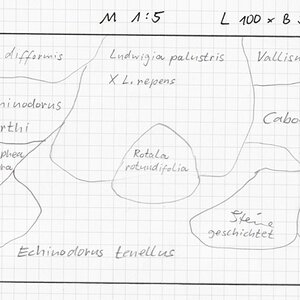 M 1:5 L 100 x B
difformis
Ludwigia palustris
X L. repens
Vallisn
hinodorus
rthi
Cabo
phea
ra
Rotala
rotundifolia
Steine
geschichtet
Echinodorus tenellus